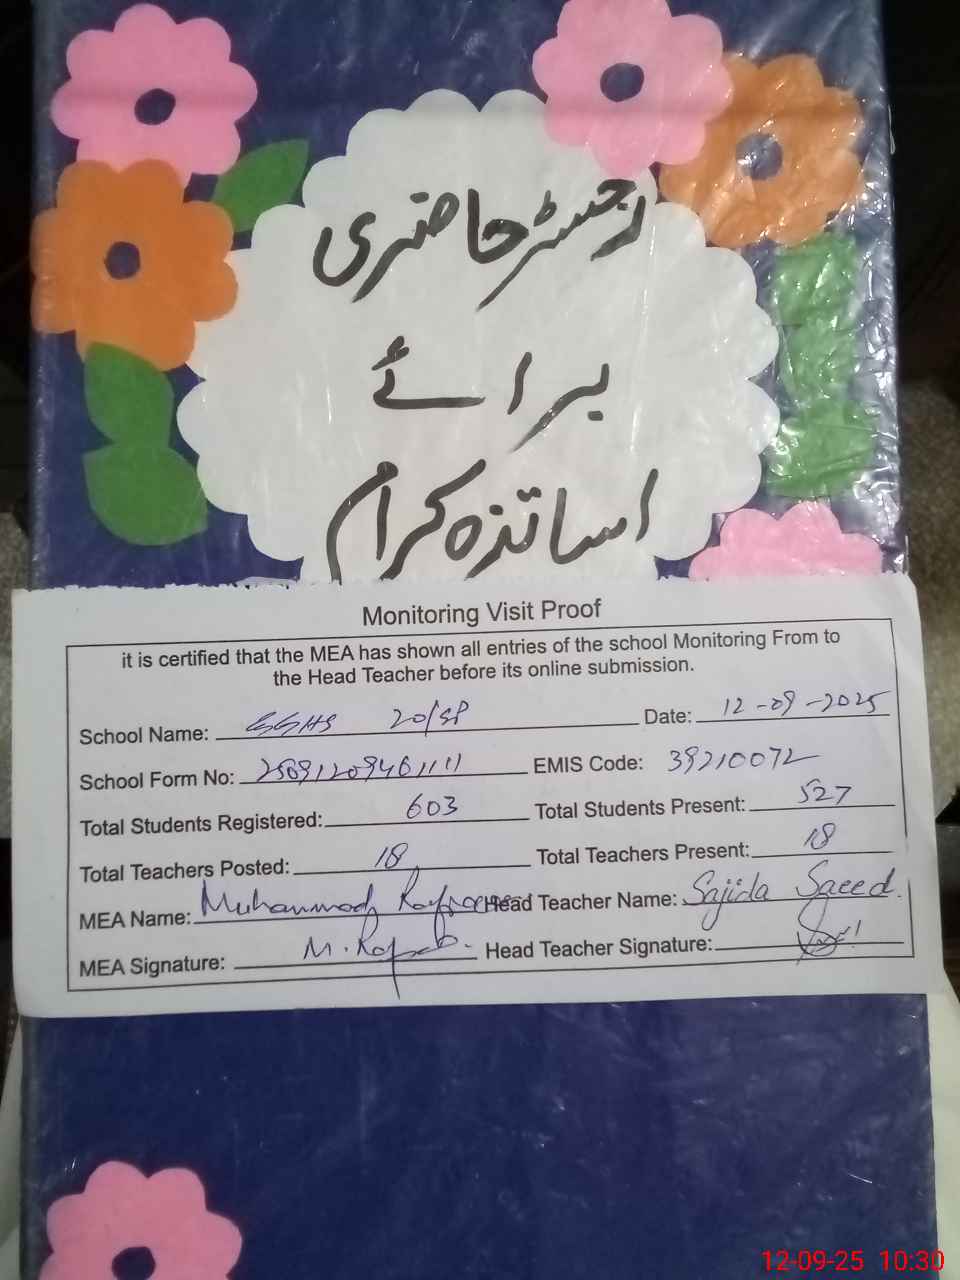 رجسٹر حاضری
برائے
اساتذہ کرام
Monitoring Visit Proof
it is certified that the MEA has shown all entries of the school Monitoring From to
the Head Teacher before its online submission.
School Name: GGHS 20/SP Date: 12-09-2025
School Form No: EMIS Code: 39210072
Total Students Registered: 603 Total Students Present: 527
Total Teachers Posted: 18 Total Teachers Present: 18
MEA Name: Muhammad Head Teacher Name: Sajida Saeed.
MEA Signature: M. Head Teacher Signature:
12-09-25 10:30